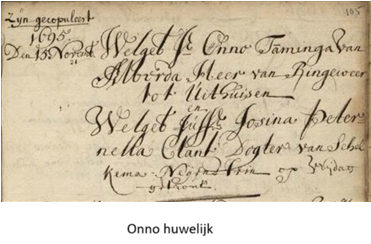 Zijn gecopuleert
1695.
Den 15 Novemb.
Welgeb. Jr. Onno Taminga van
Alberda Heer van Ringeweer
tot Uithuisen
en
Welgeb Juffr. Josina Peter-
nella Clant Dogter van Scha
kema op Vrijdag
getrout.
105
Onno huwelijk